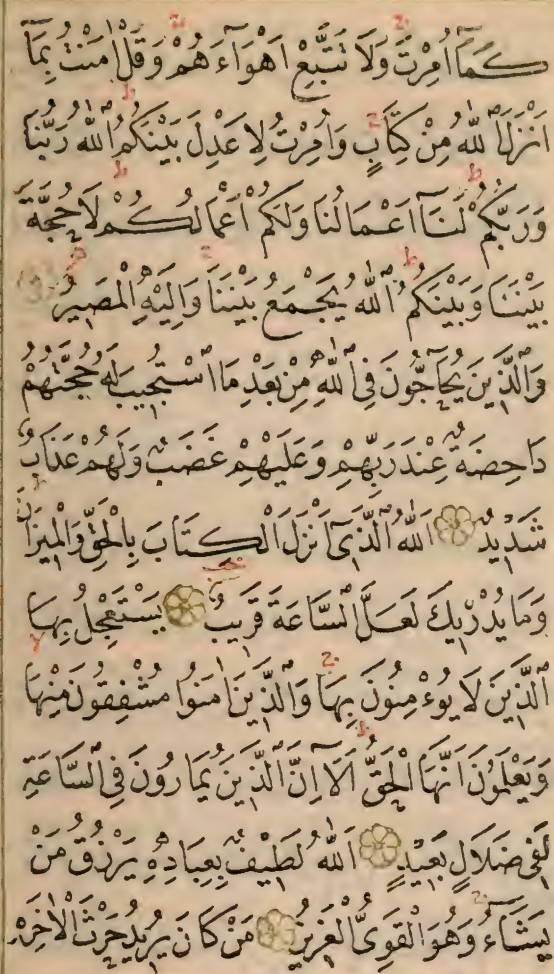 كَمَآ اُمِرْتَ وَلَا تَتَّبِعْ اَهْوَآءَهُمْ وَقُلْ اٰمَنْتُ بِمَآ
اَنْزَلَ اللّٰهُ مِنْ كِتَابٍ وَاُمِرْتُ لِاَعْدِلَ بَيْنَكُمُ اَللّٰهُ رَبُّنَا
وَرَبُّكُمْ لَنَآ اَعْمَالُنَا وَلَكُمْ اَعْمَالُكُمْ لَا حُجَّةَ
بَيْنَنَا وَبَيْنَكُمُ اَللّٰهُ يَجْمَعُ بَيْنَنَا وَاِلَيْهِ الْمَصِيرُ
وَالَّذِينَ يُحَآجُّونَ فِى اللّٰهِ مِنْ بَعْدِ مَا اسْتُجِيبَ لَهُ حُجَّتُهُمْ
دَاحِضَةٌ عِنْدَ رَبِّهِمْ وَعَلَيْهِمْ غَضَبٌ وَلَهُمْ عَذَابٌ
شَدِيدٌ اَللّٰهُ الَّذِىٓ اَنْزَلَ الْكِتَابَ بِالْحَقِّ وَالْمِيزَانَ
وَمَا يُدْرِيكَ لَعَلَّ السَّاعَةَ قَرِيبٌ يَسْتَعْجِلُ بِهَا
الَّذِينَ لَا يُوءْمِنُونَ بِهَا وَالَّذِينَ اٰمَنُوا مُشْفِقُونَ مِنْهَا
وَيَعْلَمُونَ اَنَّهَا الْحَقُّ اَلَآ اِنَّ الَّذِينَ يُمَارُونَ فِى السَّاعَةِ
لَفِى ضَلَالٍ بَعِيدٍ اَللّٰهُ لَطِيفٌ بِعِبَادِهِ يَرْزُقُ مَنْ
يَشَآءُ وَهُوَ الْقَوِىُّ الْعَزِيزُ مَنْ كَانَ يُرِيدُ حَرْثَ الْاٰخِرَةِ